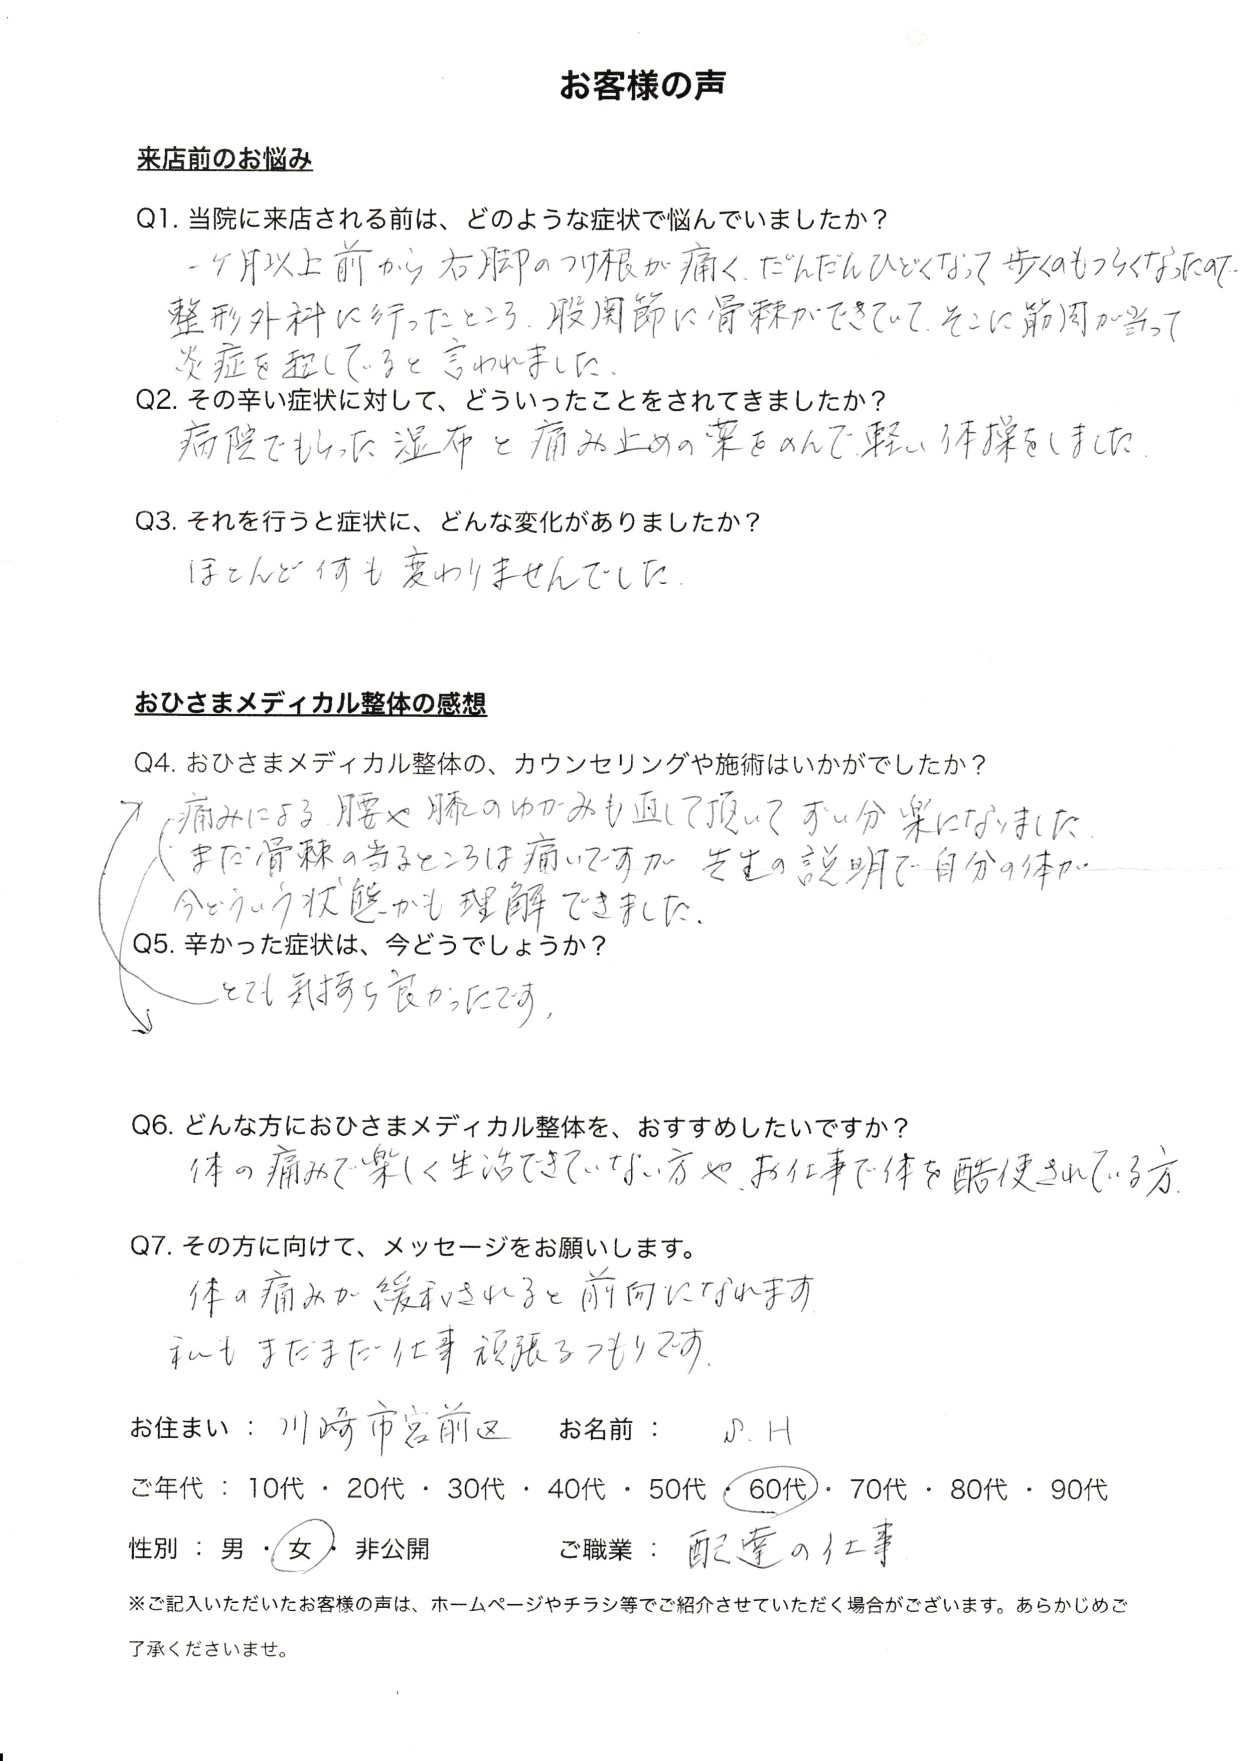 お客様の声
来店前のお悩み
Q1. 当院に来店される前は、どのような症状で悩んでいましたか？
一ケ月以上前から右脚のつけ根が痛く、だんだんひどくなって歩くのもつらくなったので
整形外科に行ったところ、股関節に骨棘ができていて、そこに筋肉が当って
炎症を起していると言われました。
Q2. その辛い症状に対して、どういったことをされてきましたか？
病院でもらった湿布と痛み止めの薬をのんで、軽い体操をしました。
Q3. それを行うと症状に、どんな変化がありましたか？
ほとんど何も変わりませんでした。
おひさまメディカル整体の感想
Q4. おひさまメディカル整体の、カウンセリングや施術はいかがでしたか？
痛みによる腰や膝のゆがみも直して頂いてずい分楽になりました。
まだ骨棘の当るところは痛いですが先生の説明で自分の体が
今どういう状態かも理解できました。
Q5. 辛かった症状は、今どうでしょうか？
とても気持ち良かったです。
Q6. どんな方におひさまメディカル整体を、おすすめしたいですか？
体の痛みで楽しく生活できていない方や、お仕事で体を酷使されている方。
Q7. その方に向けて、メッセージをお願いします。
体の痛みが緩和されると前向になれます
私もまだまだ仕事頑張るつもりです。
お住まい ： 川崎市宮前区 お名前 ： S.H
ご年代 ： 10代 ・ 20代 ・ 30代 ・ 40代 ・ 50代 ・ 60代 ・ 70代 ・ 80代 ・ 90代
性別 ： 男 ・ 女 ・ 非公開 ご職業 ： 配達の仕事
※ご記入いただいたお客様の声は、ホームページやチラシ等でご紹介させていただく場合がございます。あらかじめご
了承くださいませ。